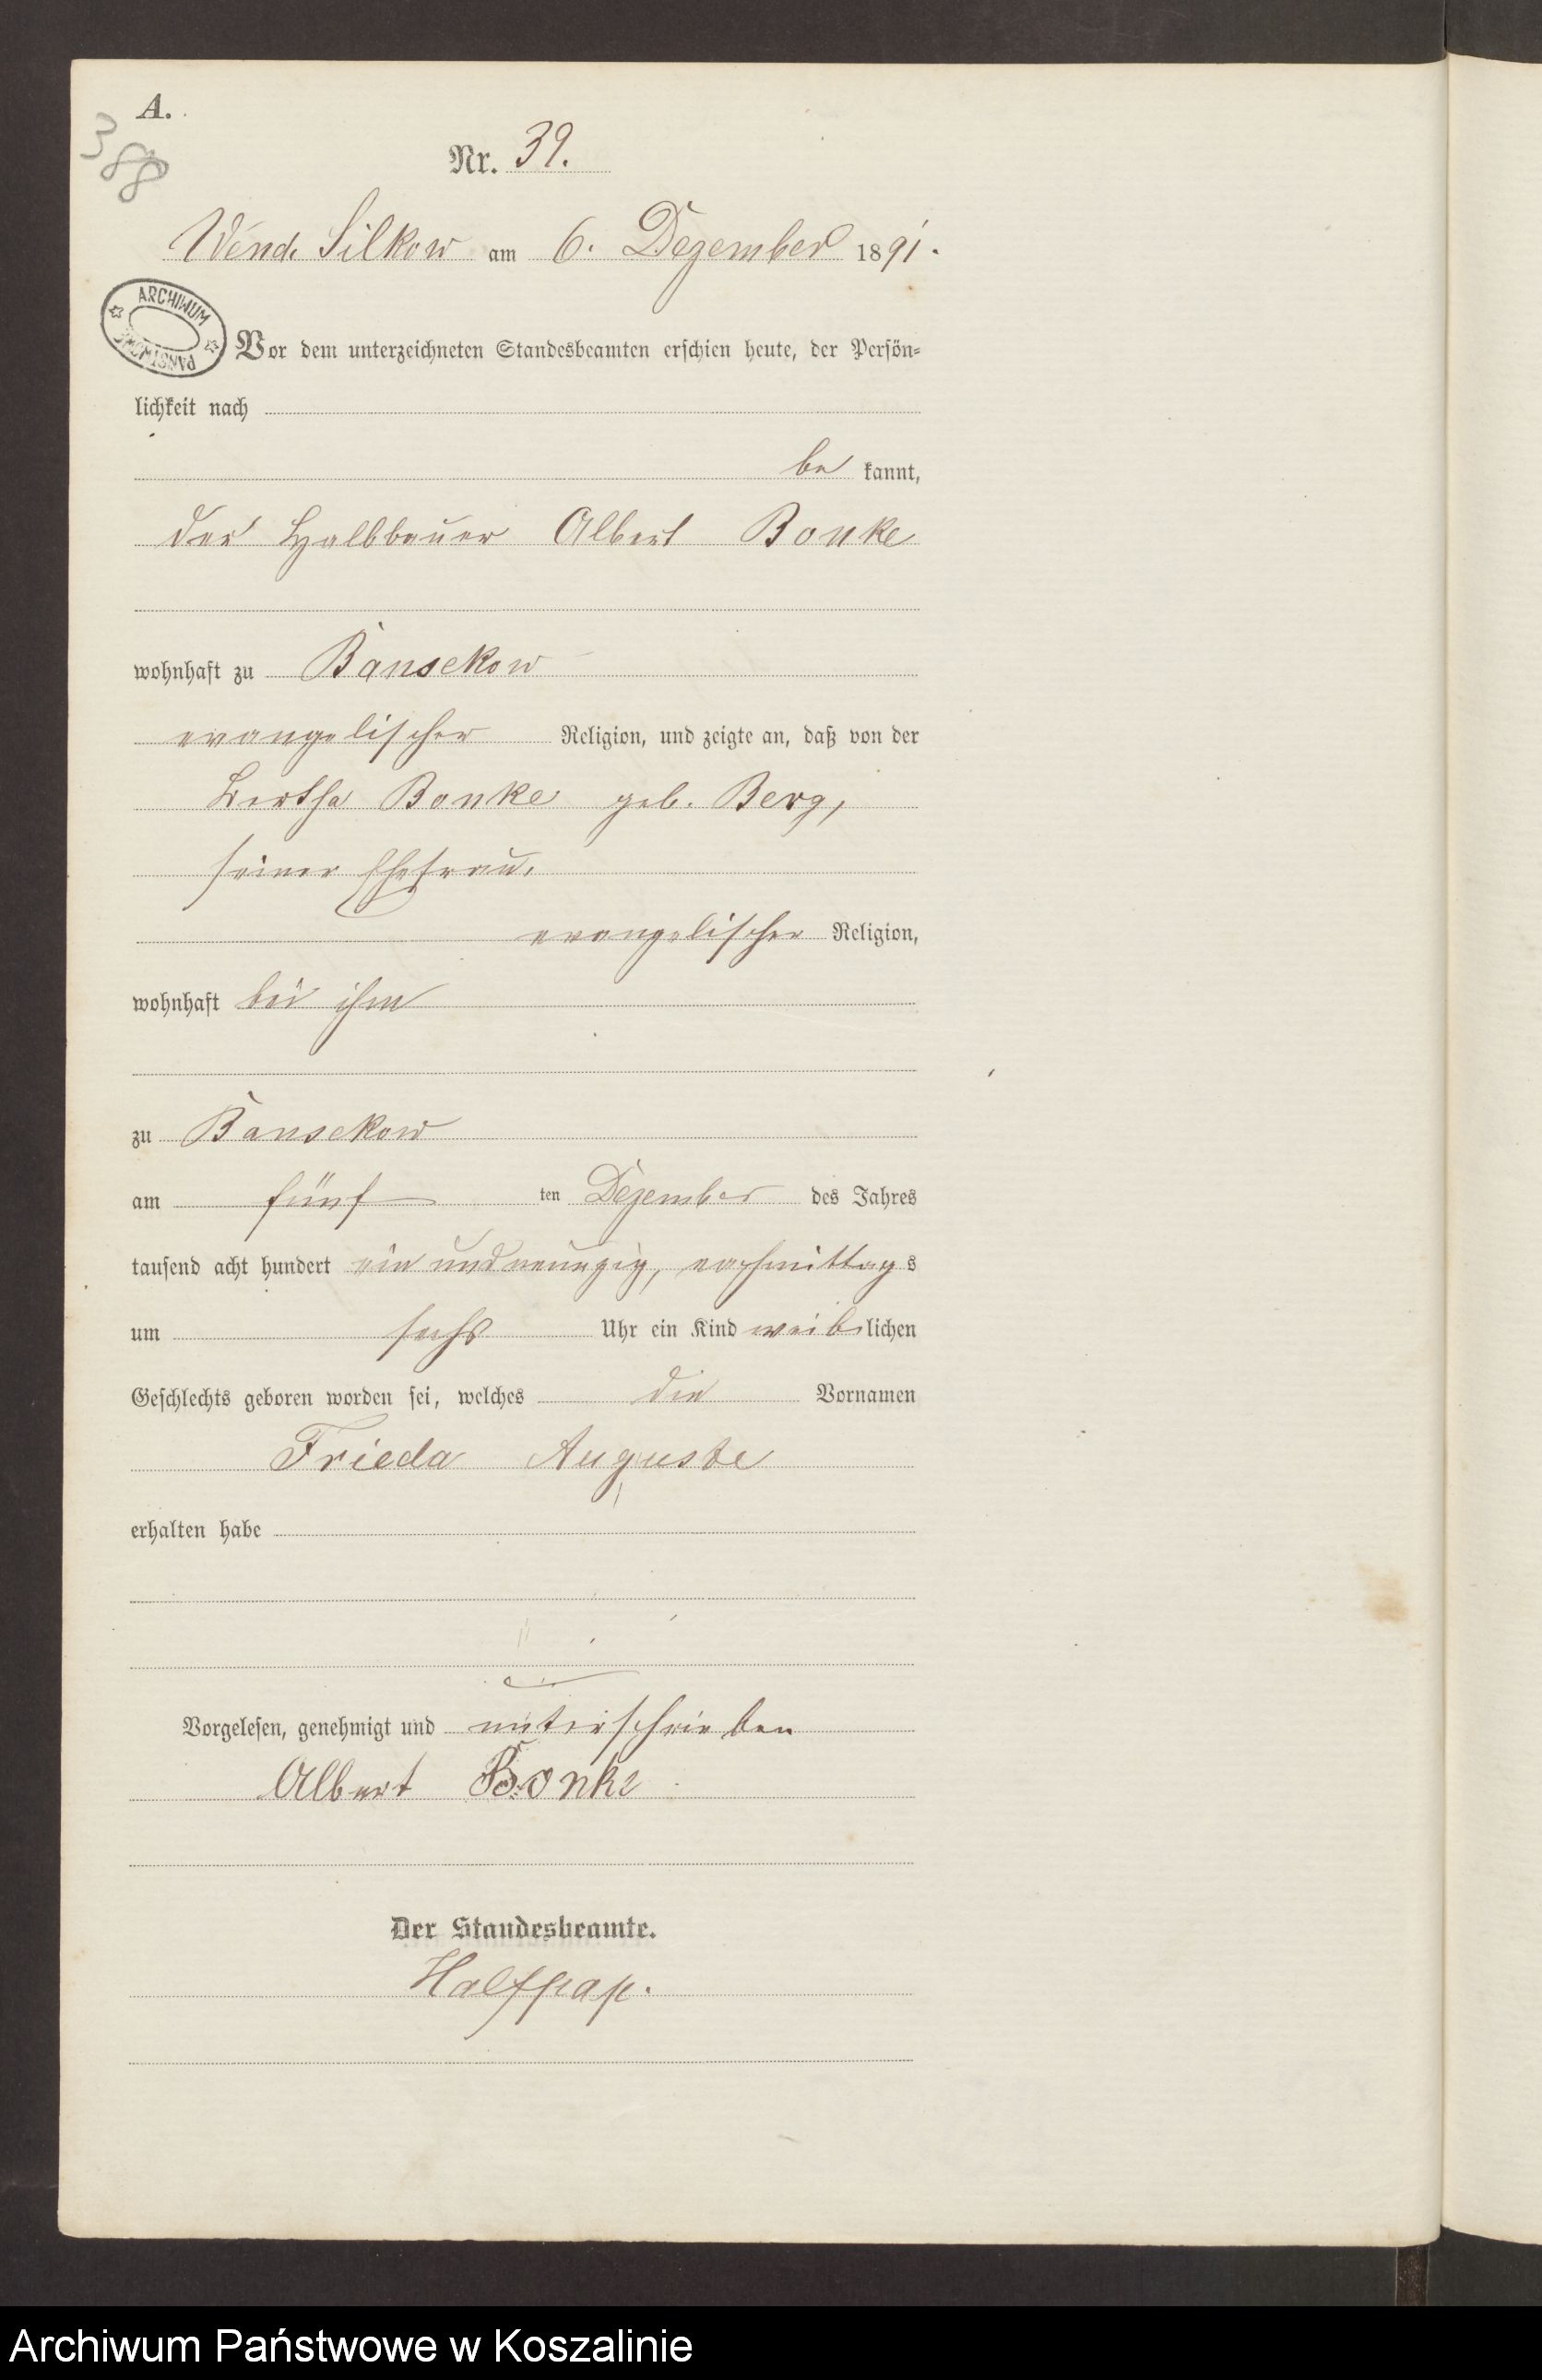 A.
388
Nr. 39.
Wend. Silkow am 6. Dezember 1891.
ARCHIWUM PAŃSTWOWE
Vor dem unterzeichneten Standesbeamten erschien heute, der Persön-
lichkeit nach
be kannt,
der Halbbauer Albert Bonke
wohnhaft zu Bansekow
evangelischer Religion, und zeigte an, daß von der
Bertha Bonke geb. Berg,
seiner Ehefrau,
evangelischer Religion,
wohnhaft bei ihm
zu Bansekow
am fünf ten Dezember des Jahres
tausend acht hundert ein und neunzig, nachmittags
um sechs Uhr ein Kind weiblichen
Geschlechts geboren worden sei, welches die Vornamen
Frieda Auguste
erhalten habe
Vorgelesen, genehmigt und unterschrieben
Albert Bonke
Der Standesbeamte.
Halfpap.
Archiwum Państwowe w Koszalinie